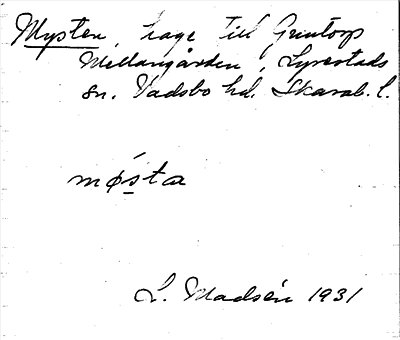 Mysten, hage till Grintorp
Mellangården, Lyrestads
sn. Vadsbo hd. Skarab. l.
møsta
L. Madsén 1931